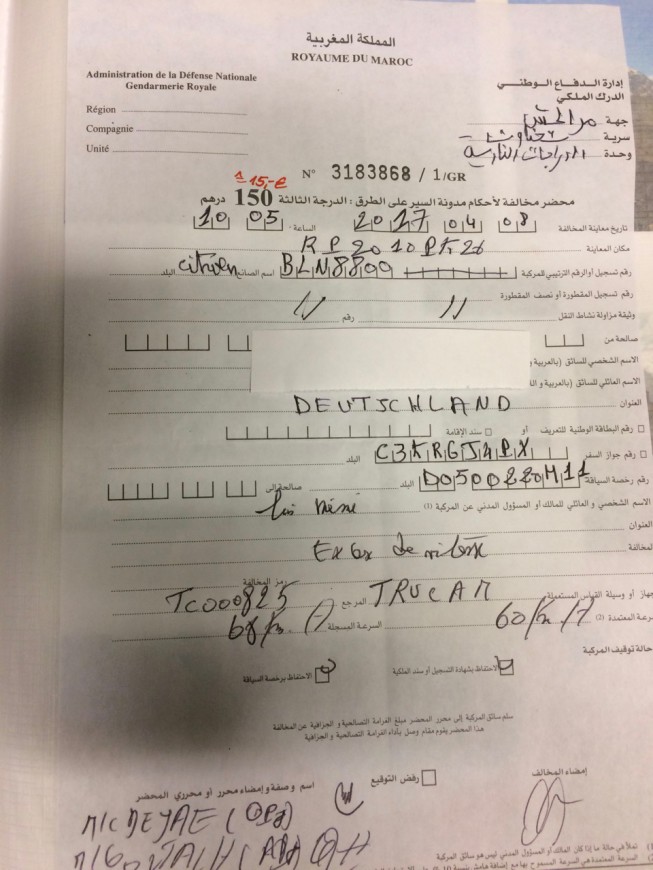 المملكة المغربية
ROYAUME DU MAROC
Administration de la Défense Nationale
Gendarmerie Royale
إدارة الدفاع الوطني
الدرك الملكي
Région
جهة مراكش
Compagnie
سرية
Unité
وحدة الدراجات النارية
N° 3183868 / 1/GR
= 15,-€
محضر مخالفة لأحكام مدونة السير على الطرق : الدرجة الثالثة 150 درهم
تاريخ معاينة المخالفة 08 04 2017 الساعة 10 05
مكان المعاينة RP2010 PK26
رقم تسجيل أو الرقم الترتيبي للمركبة BLN8899 اسم الصانع citroen البلد
رقم تسجيل المقطورة أو نصف المقطورة
وثيقة مزاولة نشاط النقل // رقم //
صالحة من
الاسم الشخصي للسائق (بالعربية و
الاسم العائلي للسائق (بالعربية و
العنوان DEUTSCHLAND
رقم البطاقة الوطنية للتعريف أو سند الإقامة
رقم جواز السفر C3KRGJ4PX البلد
رقم رخصة السياقة D0500220M11 البلد صالحة إلى
الاسم الشخصي و العائلي للمالك أو المسؤول المدني عن المركبة (1) lui même
العنوان
المخالفة Exces de vitesse
رمز المخالفة
جهاز أو وسيلة القياس المستعملة TRUCAM المرجع TC000825
السرعة المعتمدة (2) 60/km/h السرعة المسجلة 68km/h
حالة توقيف المركبة
الاحتفاظ بشهادة التسجيل أو سند الملكية
الاحتفاظ برخصة السياقة
سلم سائق المركبة إلى محرر المحضر مبلغ الغرامة التصالحية و الجزافية عن المخالفة
هذا المحضر يقوم مقام وصل بأداء الغرامة التصالحية و الجزافية
إمضاء المخالف
رفض التوقيع
اسم وصفة و إمضاء محرر أو محرري المحضر
(1) تملأ في حالة ما إذا كان المالك أو المسؤول المدني ليس هو سائق المركبة